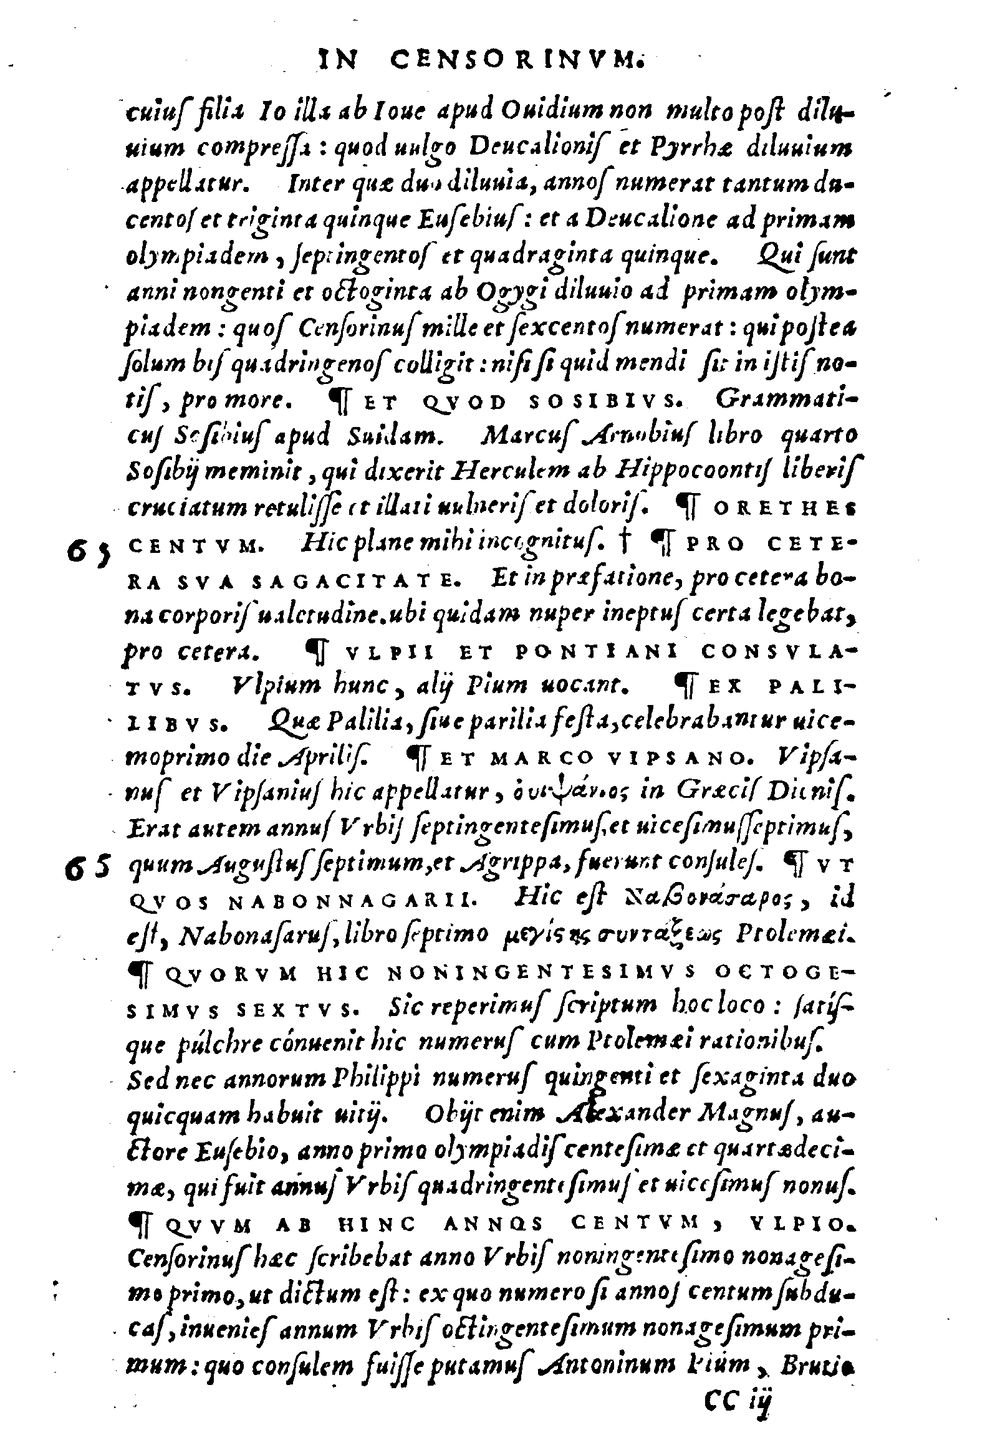 IN CENSORINVM.
cuius filia Io illa ab Ioue apud Ouidium non multo post dilu-
uium compressa: quod uulgo Deucalionis et Pyrrhæ diluuium
appellatur. Inter quæ duo diluuia, annos numerat tantum du-
centos et triginta quinque Eusebius: et a Deucalione ad primam
olympiadem, septingentos et quadraginta quinque. Qui sunt
anni nongenti et octoginta ab Ogygi diluuio ad primam olym-
piadem: quos Censorinus mille et sexcentos numerat: qui postea
solum bis quadringenos colligit: nisi si quid mendi sit in istis no-
tis, pro more. ¶ ET QVOD SOSIBIVS. Grammati-
cus Sosibius apud Suidam. Marcus Arnobius libro quarto
Sosibij meminit, qui dixerit Herculem ab Hippocoontis liberis
cruciatum retulisse et illati uulneris et doloris. ¶ ORETHES
63 CENTVM. Hic plane mihi incognitus. † ¶ PRO CETE-
RA SVA SAGACITATE. Et in præfatione, pro cetera bo-
na corporis ualetudine. ubi quidam nuper ineptus certa legebat,
pro cetera. ¶ VLPII ET PONTIANI CONSVLA-
TVS. Vlpium hunc, alij Pium uocant. ¶ EX PALI-
LIBVS. Quæ Palilia, siue parilia festa, celebrabantur uice-
moprimo die Aprilis. ¶ ET MARCO VIPSANO. Vipsa-
nus et Vipsanius hic appellatur, ὀυιψάνιος in Græcis Dionis.
Erat autem annus Vrbis septingentesimus, et uicesimusseptimus,
65 quum Augustus septimum, et Agrippa, fuerunt consules. ¶ VT
QVOS NABONNAGARII. Hic est Ναβονάσαρος, id
est, Nabonasarus, libro septimo μεγίστης συντάξεως Ptolemæi.
¶ QVORVM HIC NONINGENTESIMVS OCTOGE-
SIMVS SEXTVS. Sic reperimus scriptum hoc loco: satis-
que púlchre cónuenit hic numerus cum Ptolemæi rationibus.
Sed nec annorum Philippi numerus quingenti et sexaginta duo
quicquam habuit uitij. Obijt enim Alexander Magnus, au-
ctore Eusebio, anno primo olympiadis centesimæ et quartædeci-
mæ, qui fuit annus Vrbis quadringentesimus et uicesimus nonus.
¶ QVVM AB HINC ANNOS CENTVM, VLPIO.
Censorinus hæc scribebat anno Vrbis noningentesimo nonagesi-
mo primo, ut dictum est: ex quo numero si annos centum subdu-
cas, inuenies annum Vrbis octingentesimum nonagesimum pri-
mum: quo consulem fuisse putamus Antoninum Pium, Brutio
CC iij